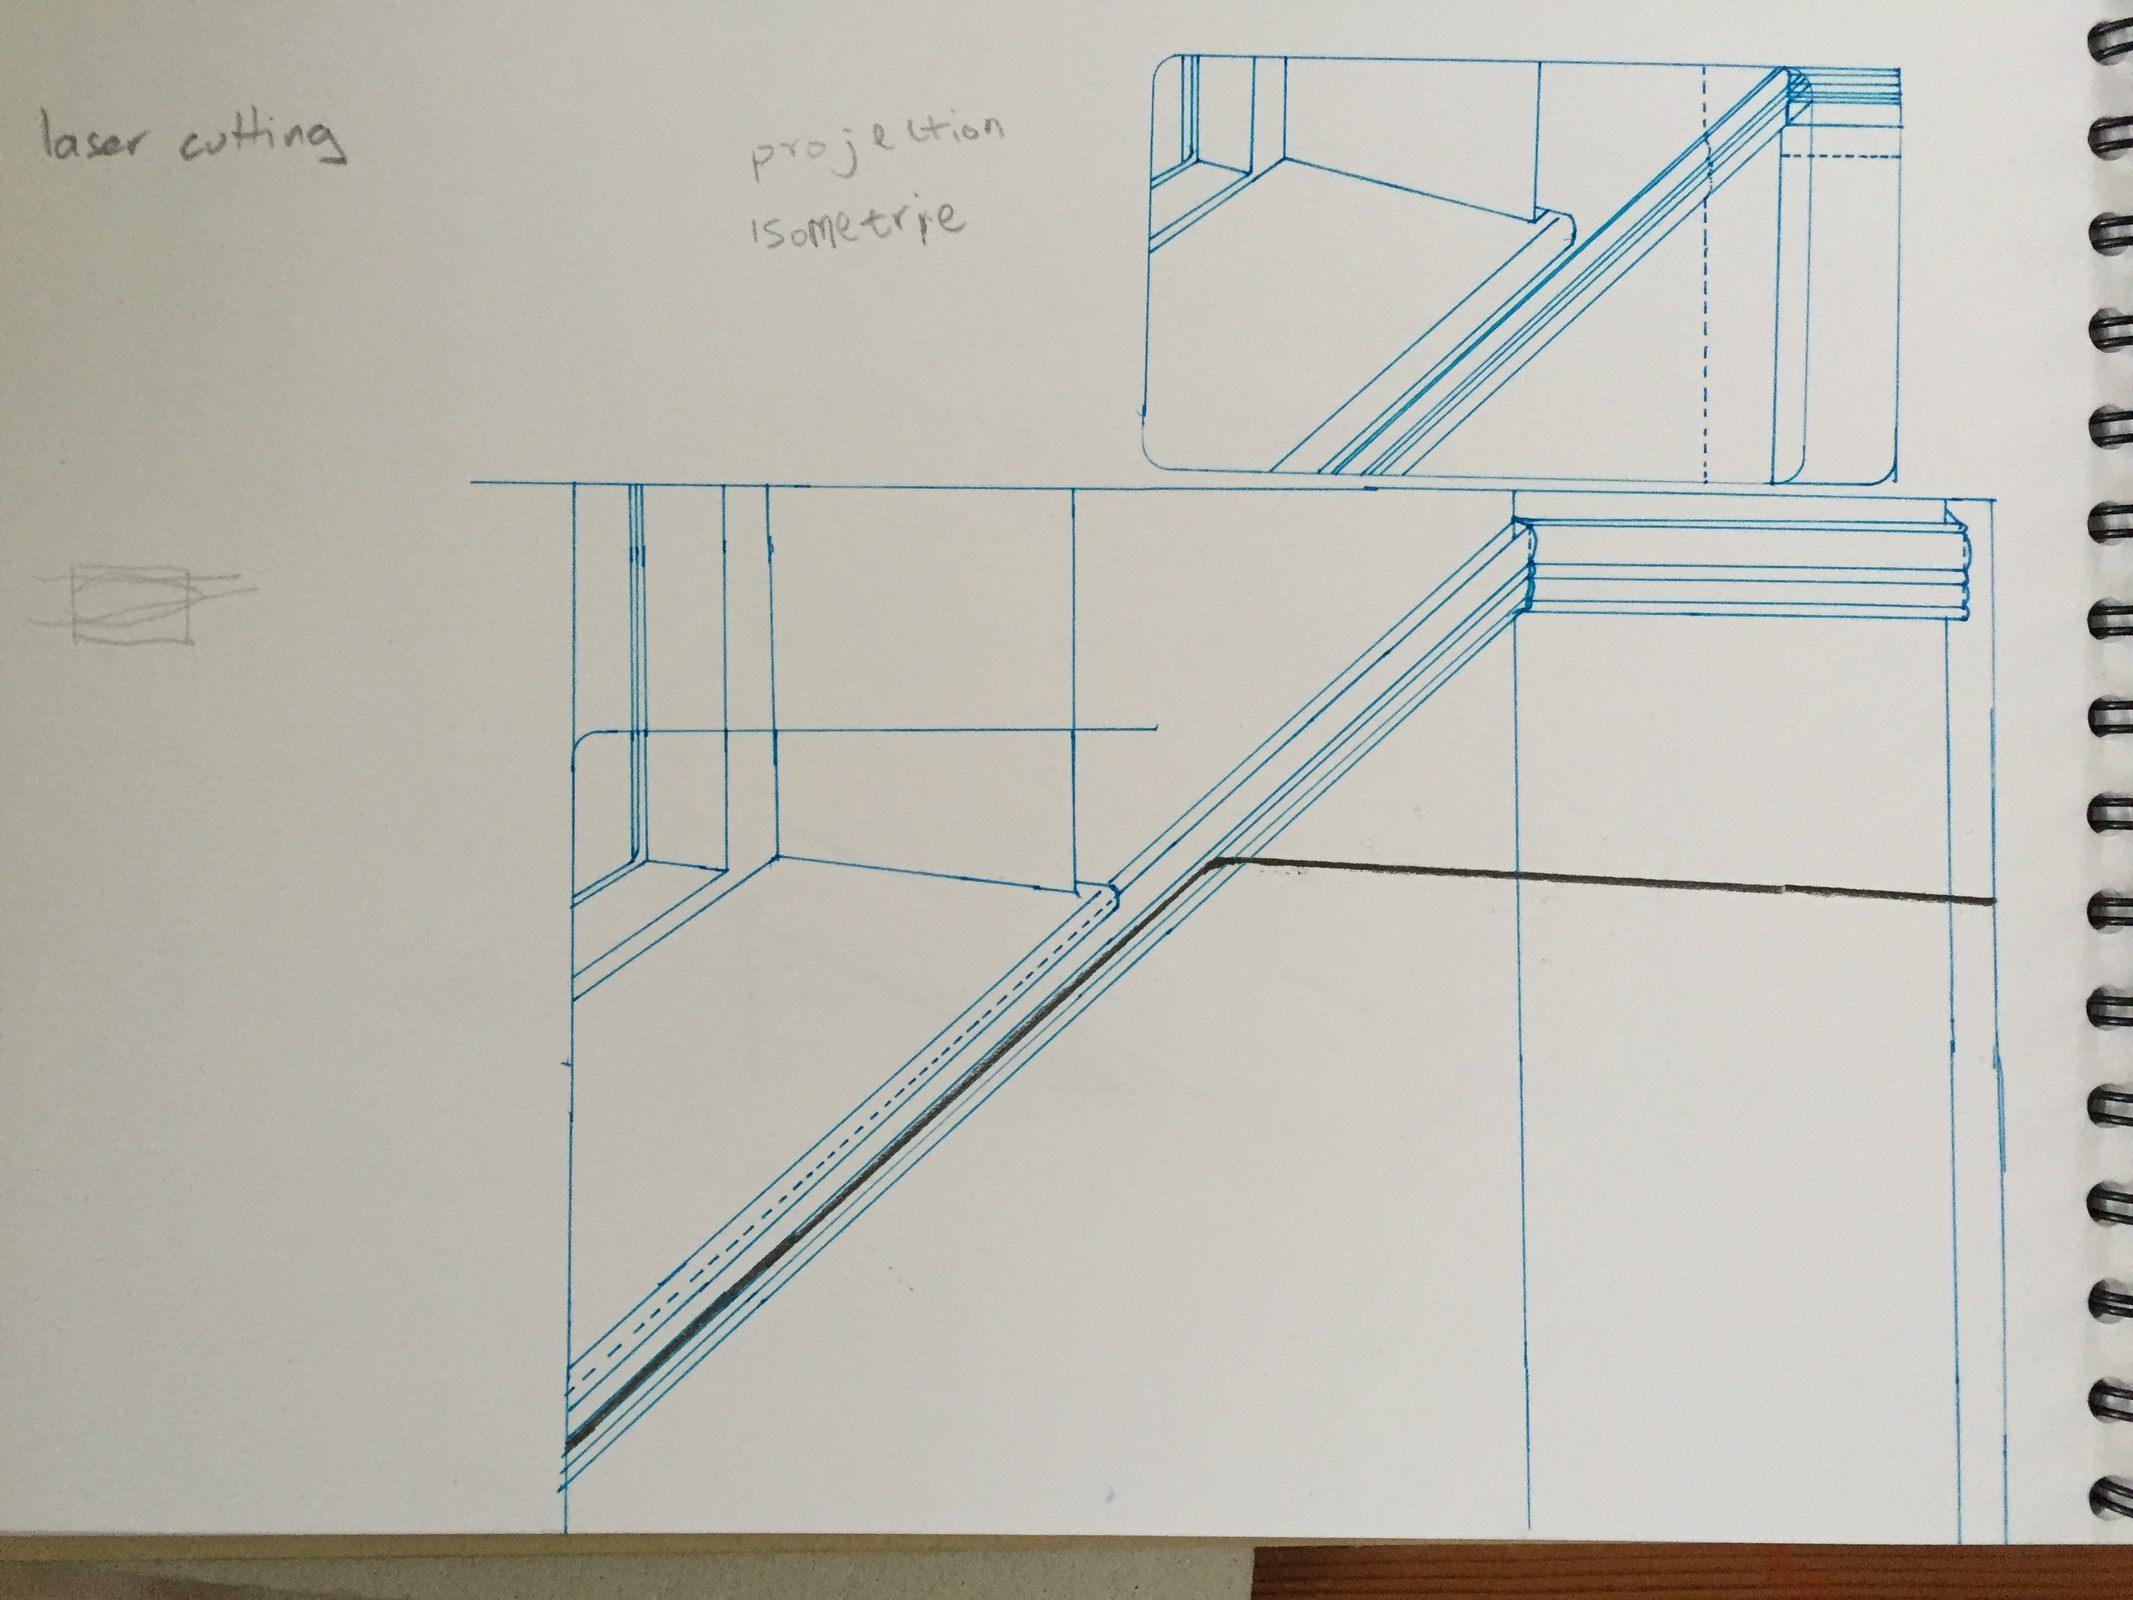 laser cutting
projection
isometrie